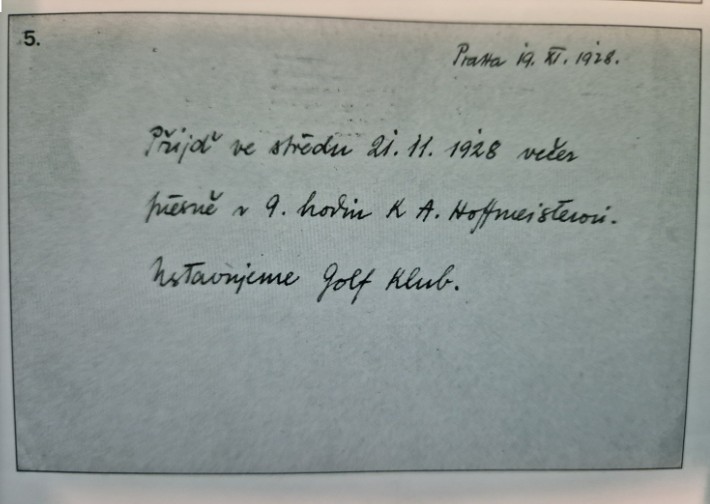 5.
Praha 19. XI. 1928.
Přijď ve středu 21. 11. 1928 večer
přesně v 9. hodin k A. Hoffmeisterovi.
Ustavujeme Golf Klub.